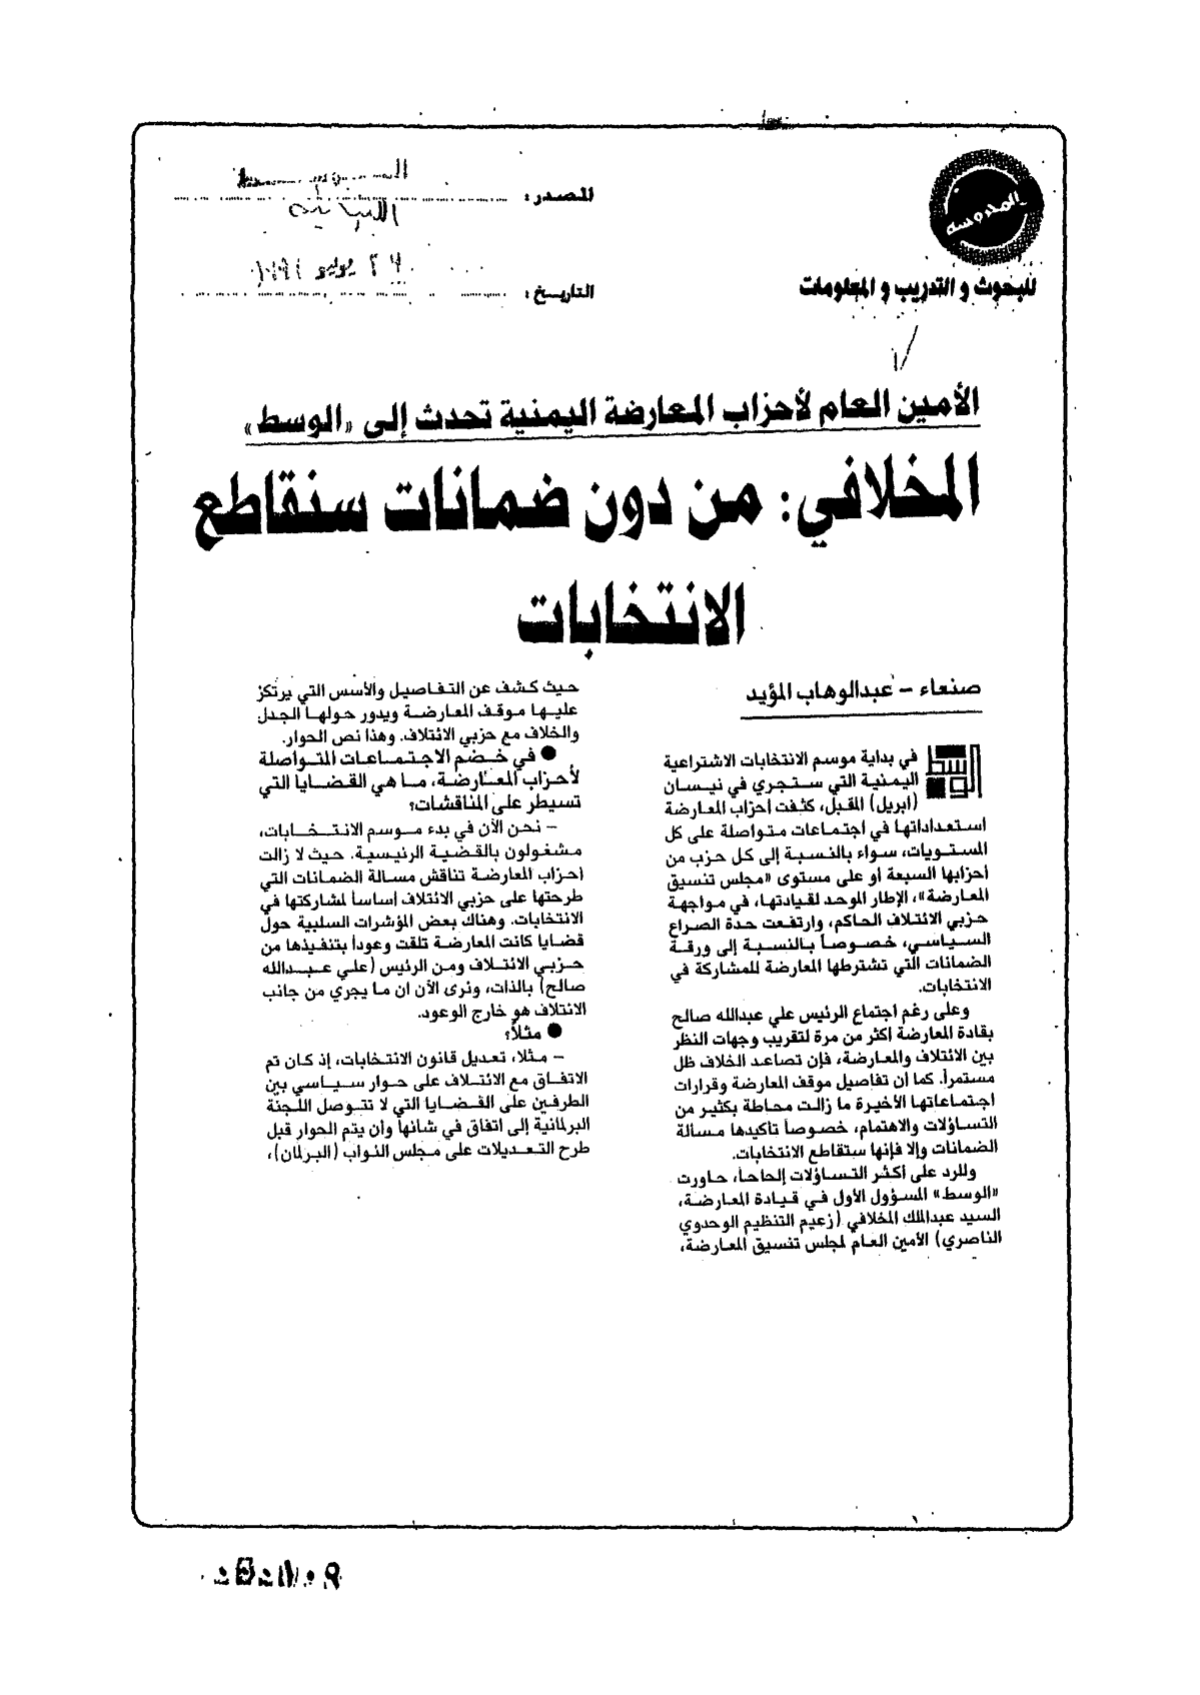 المحروسة
للبحوث و التدريب و المعلومات
المصدر :
اللبنانية
التاريخ :
٢٤ يوليو
الأمين العام لأحزاب المعارضة اليمنية تحدث إلى «الوسط»
المخلافي: من دون ضمانات سنقاطع
الانتخابات
صنعاء – عبدالوهاب المؤيد
الوسط
في بداية موسم الانتخابات الاشتراعية
اليمنية التي ستجري في نيسان
(ابريل) المقبل، كثفت أحزاب المعارضة
استعداداتها في اجتماعات متواصلة على كل
المستويات، سواء بالنسبة إلى كل حزب من
أحزابها السبعة أو على مستوى «مجلس تنسيق
المعارضة»، الإطار الموحد لقيادتها، في مواجهة
حزبي الائتلاف الحاكم، وارتفعت حدة الصراع
السياسي، خصوصاً بالنسبة إلى ورقة
الضمانات التي تشترطها المعارضة للمشاركة في
الانتخابات.
وعلى رغم اجتماع الرئيس علي عبدالله صالح
بقادة المعارضة أكثر من مرة لتقريب وجهات النظر
بين الائتلاف والمعارضة، فإن تصاعد الخلاف ظل
مستمراً. كما أن تفاصيل موقف المعارضة وقرارات
اجتماعاتها الأخيرة ما زالت محاطة بكثير من
التساؤلات والاهتمام، خصوصاً تأكيدها مسألة
الضمانات وإلا فإنها ستقاطع الانتخابات.
وللرد على أكثر التساؤلات إلحاحاً، حاورت
«الوسط» المسؤول الأول في قيادة المعارضة،
السيد عبدالملك المخلافي (زعيم التنظيم الوحدوي
الناصري) الأمين العام لمجلس تنسيق المعارضة،
حيث كشف عن التفاصيل والأسس التي يرتكز
عليها موقف المعارضة ويدور حولها الجدل
والخلاف مع حزبي الائتلاف. وهذا نص الحوار.
● في خضم الاجتماعات المتواصلة
لأحزاب المعارضة، ما هي القضايا التي
تسيطر على المناقشات؟
– نحن الآن في بدء موسم الانتخابات،
مشغولون بالقضية الرئيسية. حيث لا زالت
أحزاب المعارضة تناقش مسالة الضمانات التي
طرحتها على حزبي الائتلاف أساساً لمشاركتها في
الانتخابات. وهناك بعض المؤشرات السلبية حول
قضايا كانت المعارضة تلقت وعوداً بتنفيذها من
حزبي الائتلاف ومن الرئيس (علي عبدالله
صالح) بالذات، ونرى الآن ان ما يجري من جانب
الائتلاف هو خارج الوعود.
● مثلاً؟
– مثلا، تعديل قانون الانتخابات، إذ كان تم
الاتفاق مع الائتلاف على حوار سياسي بين
الطرفين على القضايا التي لا تتوصل اللجنة
البرلمانية إلى اتفاق في شانها وأن يتم الحوار قبل
طرح التعديلات على مجلس النواب (البرلمان)،